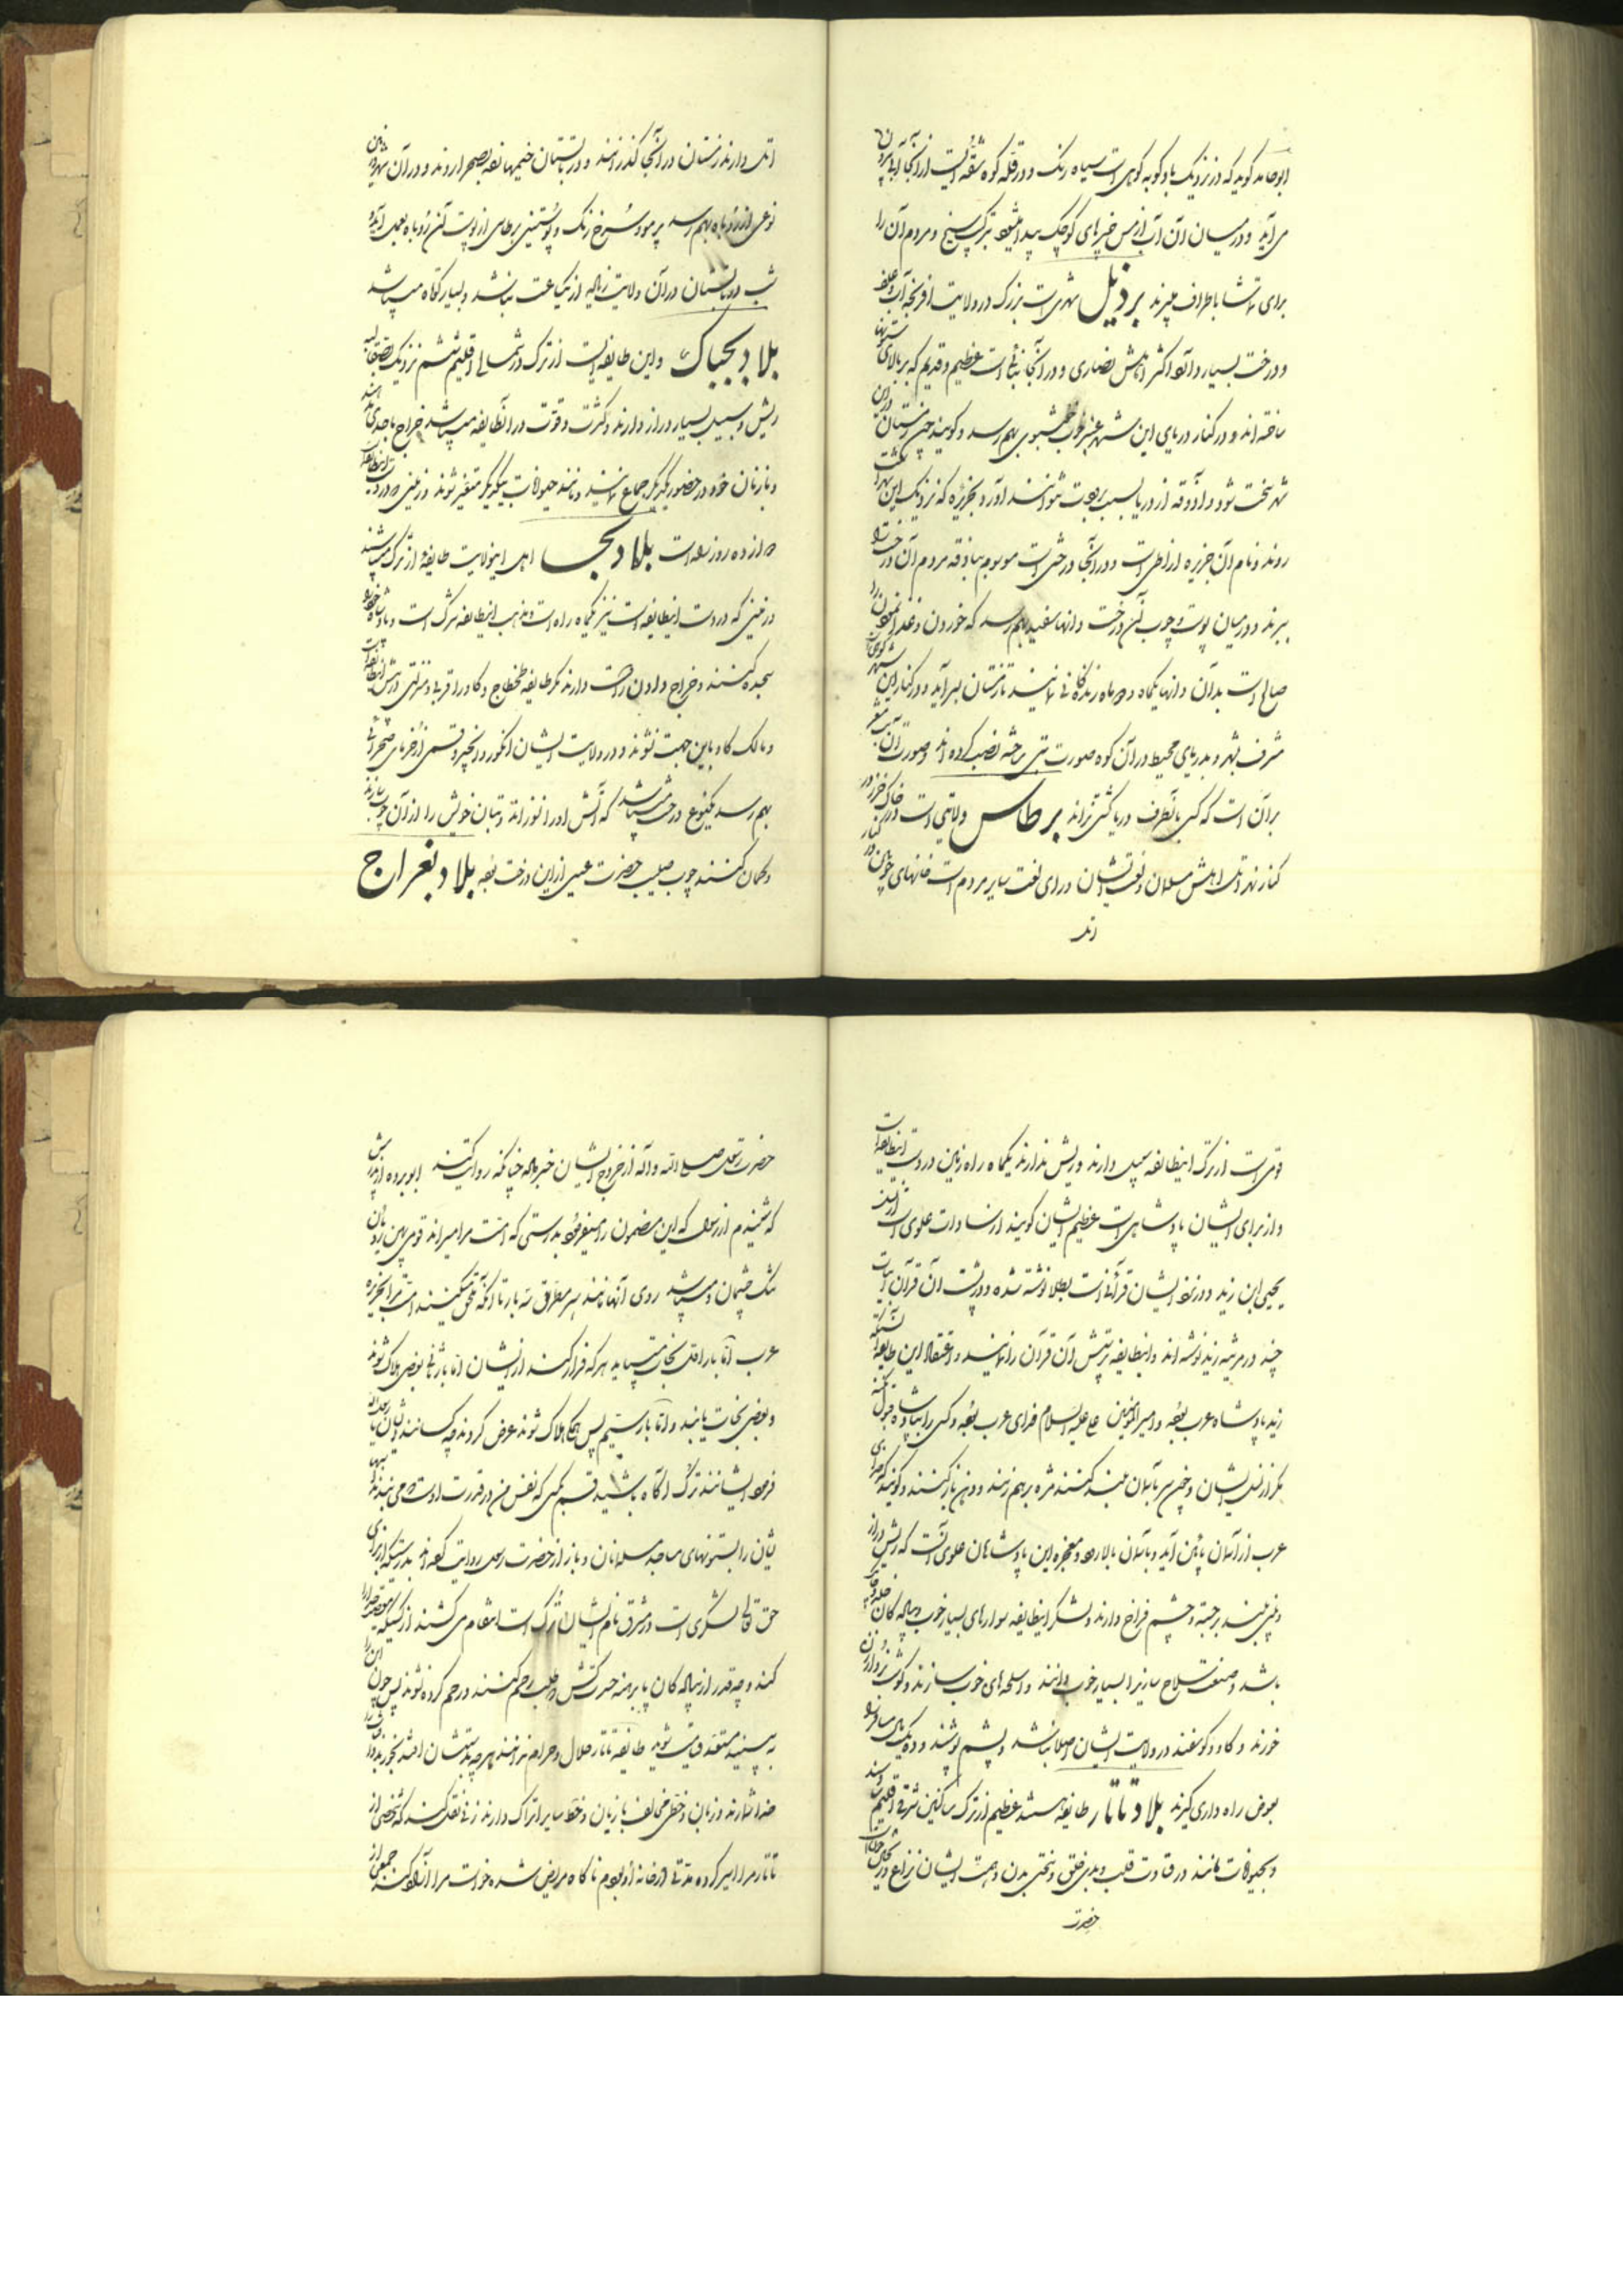 ابوحامد گوید که در نزدیک باکویه کوهی است سیاه رنگ و در قله کوه شقه ایست از آنجا آبی بیرون
می آید و در میان آن آب از مس خیرهای کوچک پیدا میشود بترکیب سنج و مردم آن را
برای تماشا باطراف میبرند بردیل شهری است بزرک در ولایت افرنجه آب و علف
و درخت بسیار دارد اکثر اهلش نصاری و در آنجا بنائی است عظیم و قدیم که بر بالای ستونها
ساخته اند و در کنار دریای این شهر عنبر خوب خوشبوی بهم رسد و گویند چون زمستان در این
شهر سخت شود و آذوقه از دریا بسبب برودت نتوانند آورد بجزیره که نزدیک این شهر است
روند و نام آن جزیره است و در آنجا درختی است موسوم بماذوقه مردم آن درخت را
ببرند و در میان پوست و چوب آن درخت دانهای سفید بهم رسد که خوردن و غذا نمودن را
صالح است بدان دانها یکماه دو ماه زندگانی نمایند تا زمستان بسر آید و در کنار این شهر کوهی است
مشرف بشهر و بدریای محیط در آن کوه صورت بتی برخته نصب کرده اند و صورت آن بت مشعر
بر آن است که کسی بآنطرف دریا کشتی نراند برطاس ولایتی است در خاک خزر در کنار
کنار نهر اتل اهلش مسلمان و لغت ایشان ورای لغت سایر مردم است خانهای چوبین در
اتل
اتل دارند زمستان در آنجا گذرانند و در تابستان خیمها زده بصحرا روند و در آن سرزمین
نوعی از روباه بهم رسد پر مو و سرخ رنگ و پوستین برطاسی از پوست آن روباه بعمل آید و
شب در تابستان در آن ولایت زیاده از یکساعت نباشد و بسیار کوتاه میباشد
بلاد بجناک و این طایفه ایست از ترک در شمالی اقلیم ششم نزدیک بصقالبه
ریش و سبیل بسیار دراز دارند و کثرت و قوت در آنطایفه میباشد خراج باحدی ندهند
و با زنان خود در حضور یکدیگر جماع نمایند و مانند حیوانات بیکدیگر متغیر نشوند و زمینی در دست اینطایفه
دوازده روزه است بلاد بجا اهل اینولایت طایفه از ترک میباشند
و زمینی که در دست اینطایفه است نیز یکماه راه است و مذهب اینطایفه شرک است و پادشاه خود را
سجده کنند و خراج دادن راست دارند مگر طایفه طخطاج و گاو را قربی و منزلتی در پیش اینطایفه است
و مالک گاو باین جهت نشوند و در ولایت ایشان انگور و انجیر و قسمی از خرمای صحرائی
بهم رسد و یکنوع درخت میباشد که آتش او را نسوزاند و بتان خویش را از آن چوب سازند
و گمان کنند چوب صلیب حضرت عیسی از این درخت بوده بلاد بغراج
قومی است از ترک اینطایفه سبیل دارند و ریش ندارند یکماه راه زمین در دست اینطایفه است
و از برای ایشان پادشاهی است عظیم الشان گویند از سادات علوی است از نسل
یحیی ابن زید و در نزد ایشان قرآنی است بطلا نوشته شده و در پشت آن قرآن ابیات
چند در مرثیه زید نوشته اند و اینطایفه پرستش آن قرآن را نمایند و اعتقاد این طایفه آنستکه
زید پادشاه عرب بوده و امیر المؤمنین علی علیه السلام خدای عرب بوده و کسی را بپادشاهی قبول نکنند
مگر از نسل ایشان و چون سر بآسمان بلند کنند مژه بر هم نزنند و دهن باز کنند و گویند که خدای
عرب از آسمان پائین آید و بآسمان بالا رود و معجزه این پادشاهان علوی آنست که ریش دراز
و بینی بلند برجسته و چشم فراخ دارند و لشکر اینطایفه سوارهای بسیار خوب و پیاده گان
باشد و صنعت سلاح سازیرا بسیار خوب دانند و اسلحه های خوب سازند و گوشت نر و ارزن
خورند و گاو و گوسفند در ولایت ایشان اصلا نباشد و پشم پوشند و ده یک مال مسافر را
بعوض راه داری گیرند بلاد تاتار طایفه هستند عظیم از ترک ساکنین شرقی اقلیم
و بحیوانات مانند در قساوت قلب و بدی خلق و سختی بدن و همت ایشان نزاع و ریختن
حضرت
حضرت رسول صلی الله و آله از خروج ایشان خبر داده چنانکه روایت کنند ابوبرده از پدرش
که شنیدم از رسول که این مضمون را میفرمود بدرستی که امت مرا میرانند قومی پهن رویان
تنگ چشمان و میباشد روی آنها مانند سپر مطرق سه بار تا آنکه ملحق میکنند امت مرا بجزیره
عرب اما بار اول نجات میباید هر که فرار کند از ایشان اما بار ثانی بعضی هلاک شوند
و بعضی نجات یابند و اما بار سیم پس همگی هلاک شوند عرض کردند چه کسانند ایشان یا رسول الله
فرمود ایشانند ترک آگاه باشید قسم بکسی که نفس من در قدرت اوست می بندند اسبهای
ایشان را بستونهای مساجد مسلمانان و باز از حضرت رسول روایت کرده اند بدرستیکه از برای
حق تعالی لشکری است در مشرق نام ایشان ترک است انتقام می کشند از کسیکه معصیت خدا را
کند و چه قدر از پیاده گان پا برهنه حسرت کش طلب رحم کنند و رحم کرده نشوند پس چون این را
به بینید مستعد قیامت شوید طایفه تاتار حلال و حرام ندانند هر چه بدستشان افتد بخورند و آفتاب را
خدا شمارند و زبان و خطی مخالف با زبان و خط سایر اتراک دارند زنی نقل کند که شخصی از
تاتار مرا اسیر کرده مدتی در خانه او بودم ناگاه مریض شده خواست مرا آزاد کند جمعی از